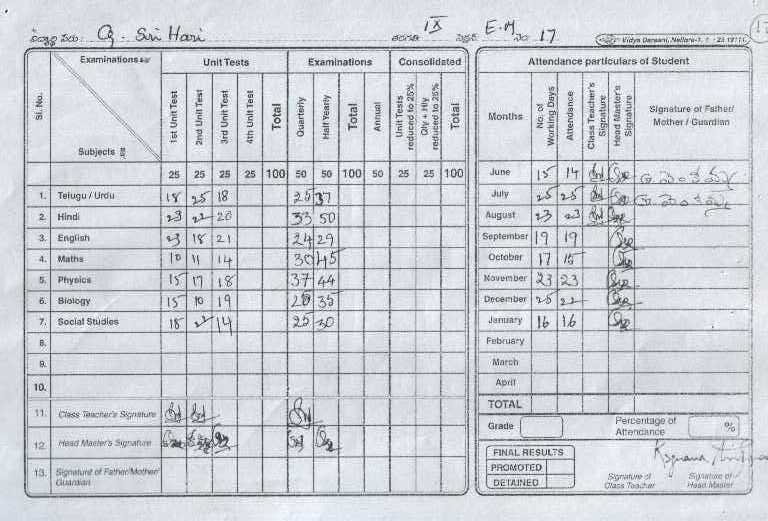 విద్యార్థి పేరు: G. Siri Hari తరగతి IX సెక్షన్ E.M నెం 17
Vidya Darsani, Nellore-1.
Examinations
Subjects
Sl. No.
Unit Tests Examinations Consolidated
1st Unit Test 2nd Unit Test 3rd Unit Test 4th Unit Test Total Quarterly Half Yearly Total Annual Unit Tests reduced to 25% Qly + Hly reduced to 25% Total
25 25 25 25 100 50 50 100 50 25 25 100
1. Telugu / Urdu 18 25 18 25 37
2. Hindi 23 22 20 33 50
3. English 23 18 21 24 29
4. Maths 10 11 14 30 45
5. Physics 15 17 18 37 44
6. Biology 15 10 19 35
7. Social Studies 18 22 14 25 30
8.
9.
10.
11. Class Teacher's Signature
12. Head Master's Signature
13. Signature of Father/Mother/ Guardian
Attendance particulars of Student
Months No. of Working Days Attendance Class Teacher's Signature Head Master's Signature Signature of Father/ Mother / Guardian
June 15 14
July 25 25
August 23 23
September 19 19
October 17 15
November 23 23
December 25 22
January 16 16
February
March
April
TOTAL
Grade Percentage of Attendance %
FINAL RESULTS
PROMOTED
DETAINED
Signature of Class Teacher
Signature of Head Master